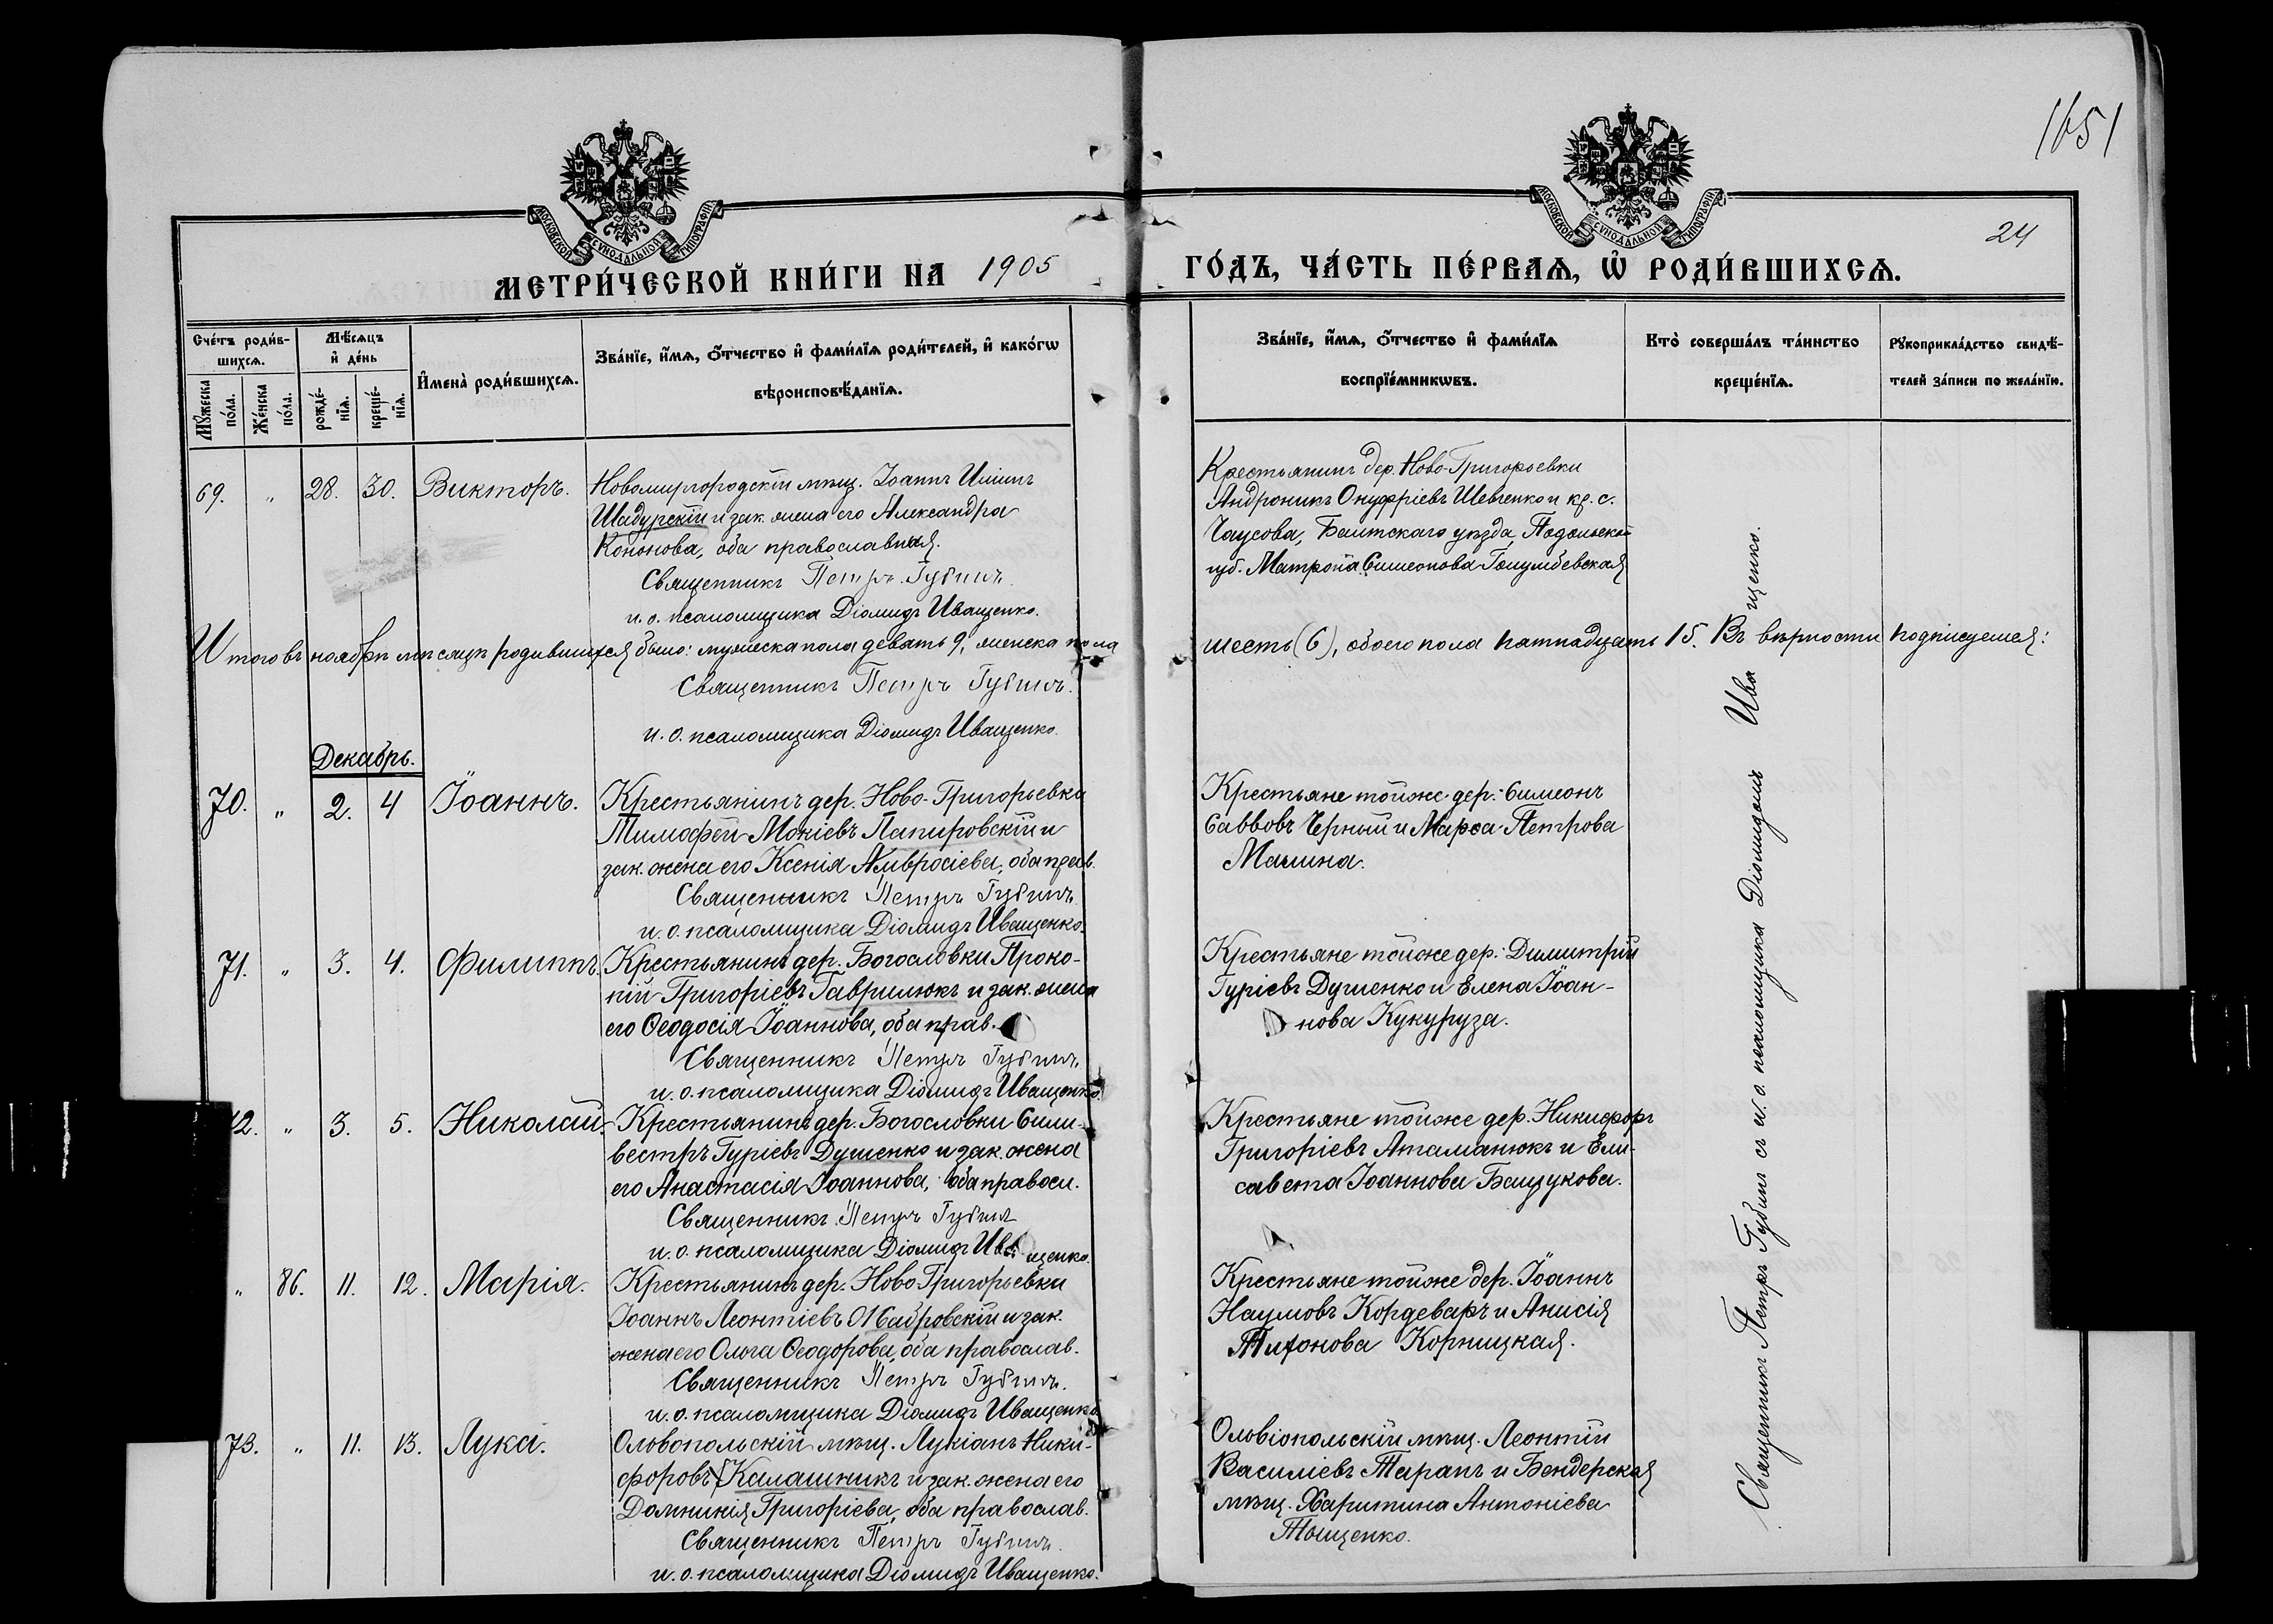 1651
24
МОСКОВСКОЙ СУНОДАЛЬНОЙ ТИПОГРАФІИ
МОСКОВСКОЙ СУНОДАЛЬНОЙ ТИПОГРАФІИ
МЕТРИ́ЧЕСКОЙ КНИ́ГИ НА 1905
ГО́ДЪ, ЧА́СТЬ ПЕ́РВАѦ, Ѡ҆ РОДИ́ВШИХСѦ.
Сче́тъ роди́в-
шихсѧ.
Мѣ́сѧцъ
и҆ де́нь
Мꙋ́жеска по́ла.
Же́нска по́ла.
рожде́-нїѧ.
креще́-нїѧ.
И҆мена̀ роди́вшихсѧ.
Зва́нїе, и҆́мѧ, ѻ҆́тчество и҆ фами́лїѧ роди́телей, и҆ како́гѡ
вѣроисповѣ́данїѧ.
Зва́нїе, и҆́мѧ, ѻ҆́тчество и҆ фами́лїѧ
воспрїе́мникѡвъ.
Кто̀ соверша́лъ та́инство
креще́нїѧ.
Рꙋкоприкла́дство свидѣ́-
телей за́писи по жела́нїю.
69. " 28. 30. Викторъ.
Новомиргородскій мѣщ. Іоаннъ Иліинъ
Шадурскій и зак. жена его Александра
Кононова, оба православная.
Священникъ Петръ Губинъ.
и. о. псаломщика Діомидъ Иващенко.
Крестьянинъ дер. Ново-Григорьевки
Андроникъ Онуфріевъ Шевченко и кр. с.
Чаусова, Балтскаго уѣзда, Подольской
губ. Матрона Симеонова Голумбевская
Итого въ ноябрѣ мѣсяцѣ родившихся было: мужеска пола девять 9, женска пола
шесть (6), обоего пола пятнадцать 15. Въ вѣрности подписуемся:
Священникъ Петръ Губинъ.
и. о. псаломщика Діомидъ Иващенко.
Декабрь.
70. " 2. 4 Іоаннъ.
Крестьянинъ дер. Ново-Григорьевки
Тимофей Мокіевъ Папировскій и
зак. жена его Ксенія Амвросіева, оба прав.
Священникъ Петръ Губинъ.
и. о. псаломщика Діомидъ Иващенко.
Крестьяне тойже дер. Симеонъ
Саввовъ Черный и Марѳа Петрова
Малина.
71. " 3. 4. Филиппъ.
Крестьянинъ дер. Богословки Проко-
пій Григоріевъ Гаврилюкъ и зак. жена
его Ѳеодосія Іоаннова, оба прав.
Священникъ Петръ Губинъ.
и. о. псаломщика Діомидъ Иващенко.
Крестьяне тойже дер. Димитрій
Гуріевъ Душенко и Елена Іоан-
нова Кукуруза.
72. " 3. 5. Николай.
Крестьянинъ дер. Богословки Сили-
вестръ Гуріевъ Душенко и зак. жена
его Анастасія Іоаннова, оба правосл.
Священникъ Петръ Губинъ
и. о. псаломщика Діомидъ Иващенко.
Крестьяне тойже дер. Никифоръ
Григоріевъ Атаманюкъ и Ели-
савета Іоаннова Бащукова.
" 86. 11. 12. Марія.
Крестьянинъ дер. Ново Григорьевки
Іоаннъ Леонтіевъ Мабровскій и зак.
жена его Ольга Ѳеодорова, оба православ.
Священникъ Петръ Губинъ.
и. о. псаломщика Діомидъ Иващенко.
Крестьяне тойже дер. Іоаннъ
Наумовъ Кордеваръ и Анисія
Тихонова Корницкая.
73. " 11. 13. Лука.
Ольвопольскій мѣщ. Лукіанъ Ники-
форовъ Калашникъ и зак. жена его
Домникія Григоріева, оба православ.
Священникъ Петръ Губинъ.
и. о. псаломщика Діомидъ Иващенко.
Ольвіопольскій мѣщ. Леонтій
Василіевъ Таранъ и Бендерская
мѣщ. Харитина Антоніева
Тыщенко.
Священникъ Петръ Губинъ съ и. о. псаломщика Діомидомъ Иващенко.